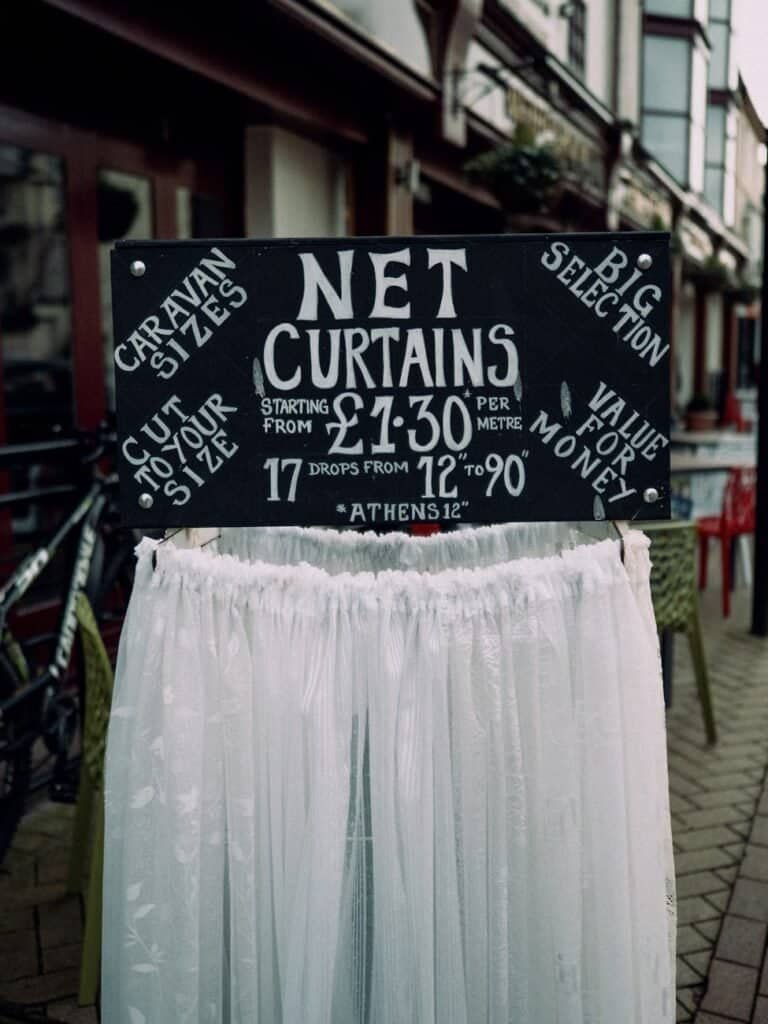 CARAVAN
SIZES
NET
CURTAINS
BIG
SELECTION
STARTING
FROM
£1·30*
PER
METRE
CUT
TO YOUR
SIZE
17 DROPS FROM 12" TO 90"
*ATHENS 12"
VALUE
FOR
MONEY